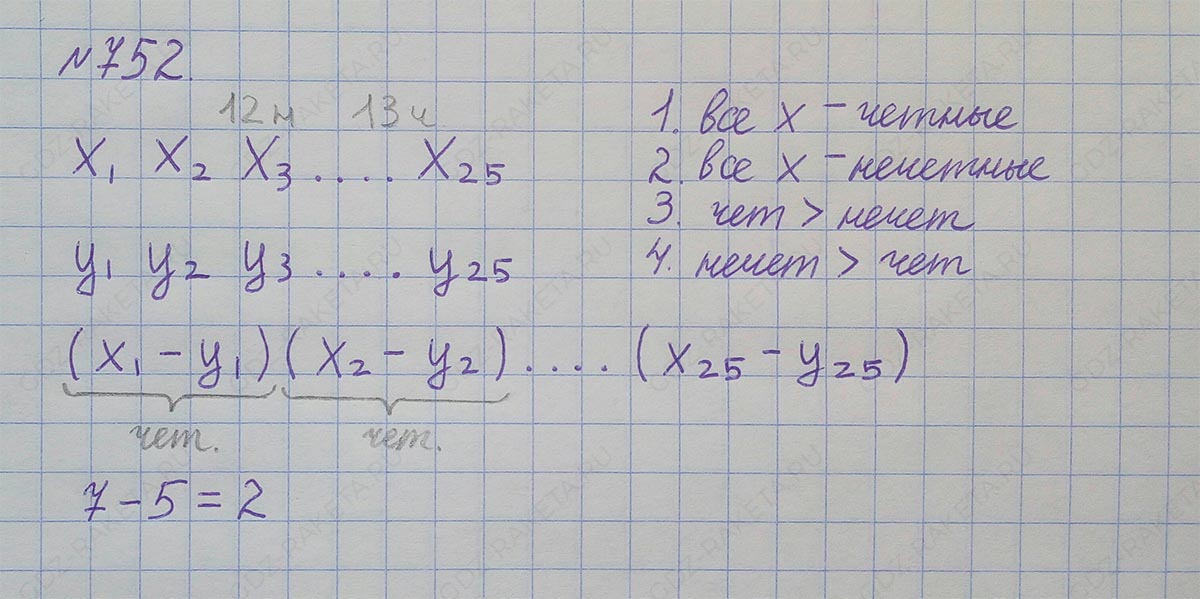 N752.
12н 13ч
x1 x2 x3 .... x25
y1 y2 y3 ..... y25
(x1 - y1)(x2 - y2) .... (x25 - y25)
чет. чет.
7 - 5 = 2
1. все x - четные
2. все x - нечетные
3. чет > нечет
4. нечет > чет
GDZ-RAKETA.RU